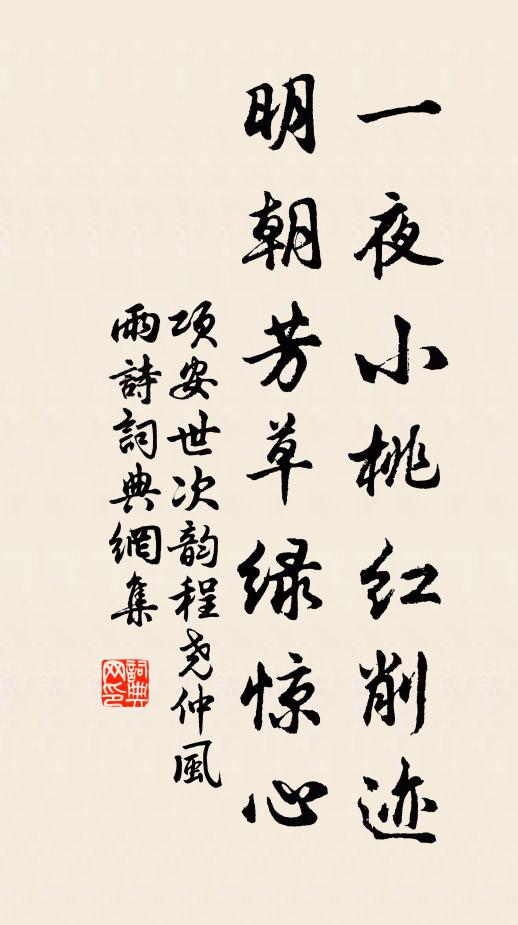 一夜小桃红削迹
明朝芳草绿惊心
项安世次韵程尧仲風
雨詩詞典網集
詞典网印